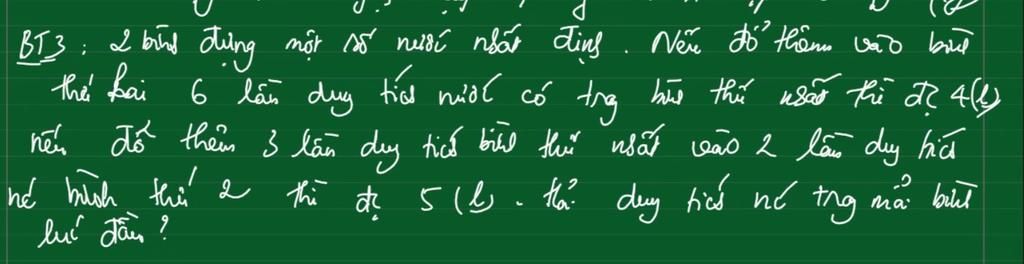 BT3: 2 bình đựng một số nước nhất định. Nếu đổ thêm vào bình
thứ hai 6 lần dung tích nước có trg bình thứ nhất thì đc 4(l)
nếu đổ thêm 3 lần dung tích bình thứ nhất vào 2 lần dung tích
nc bình thứ 2 thì đc 5 (l). dung tích nc trg mỗi bình
lúc đầu?